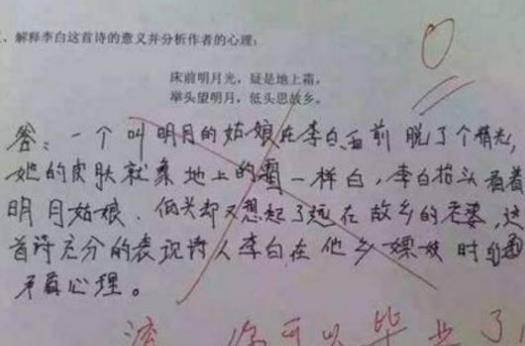 、解释李白这首诗的意义并分析作者的心理:
床前明月光,疑是地上霜。
举头望明月,低头思故乡。
0
答:一个叫明月的姑娘在李白面前脱了个精光,
她的皮肤就象地上的霜一样白,李白抬头看着
明月姑娘、低头却又想起了远在故乡的老婆,这
首诗充分的表现诗人李白在他乡嫖妓时的矛
盾心理。
你可以毕业了